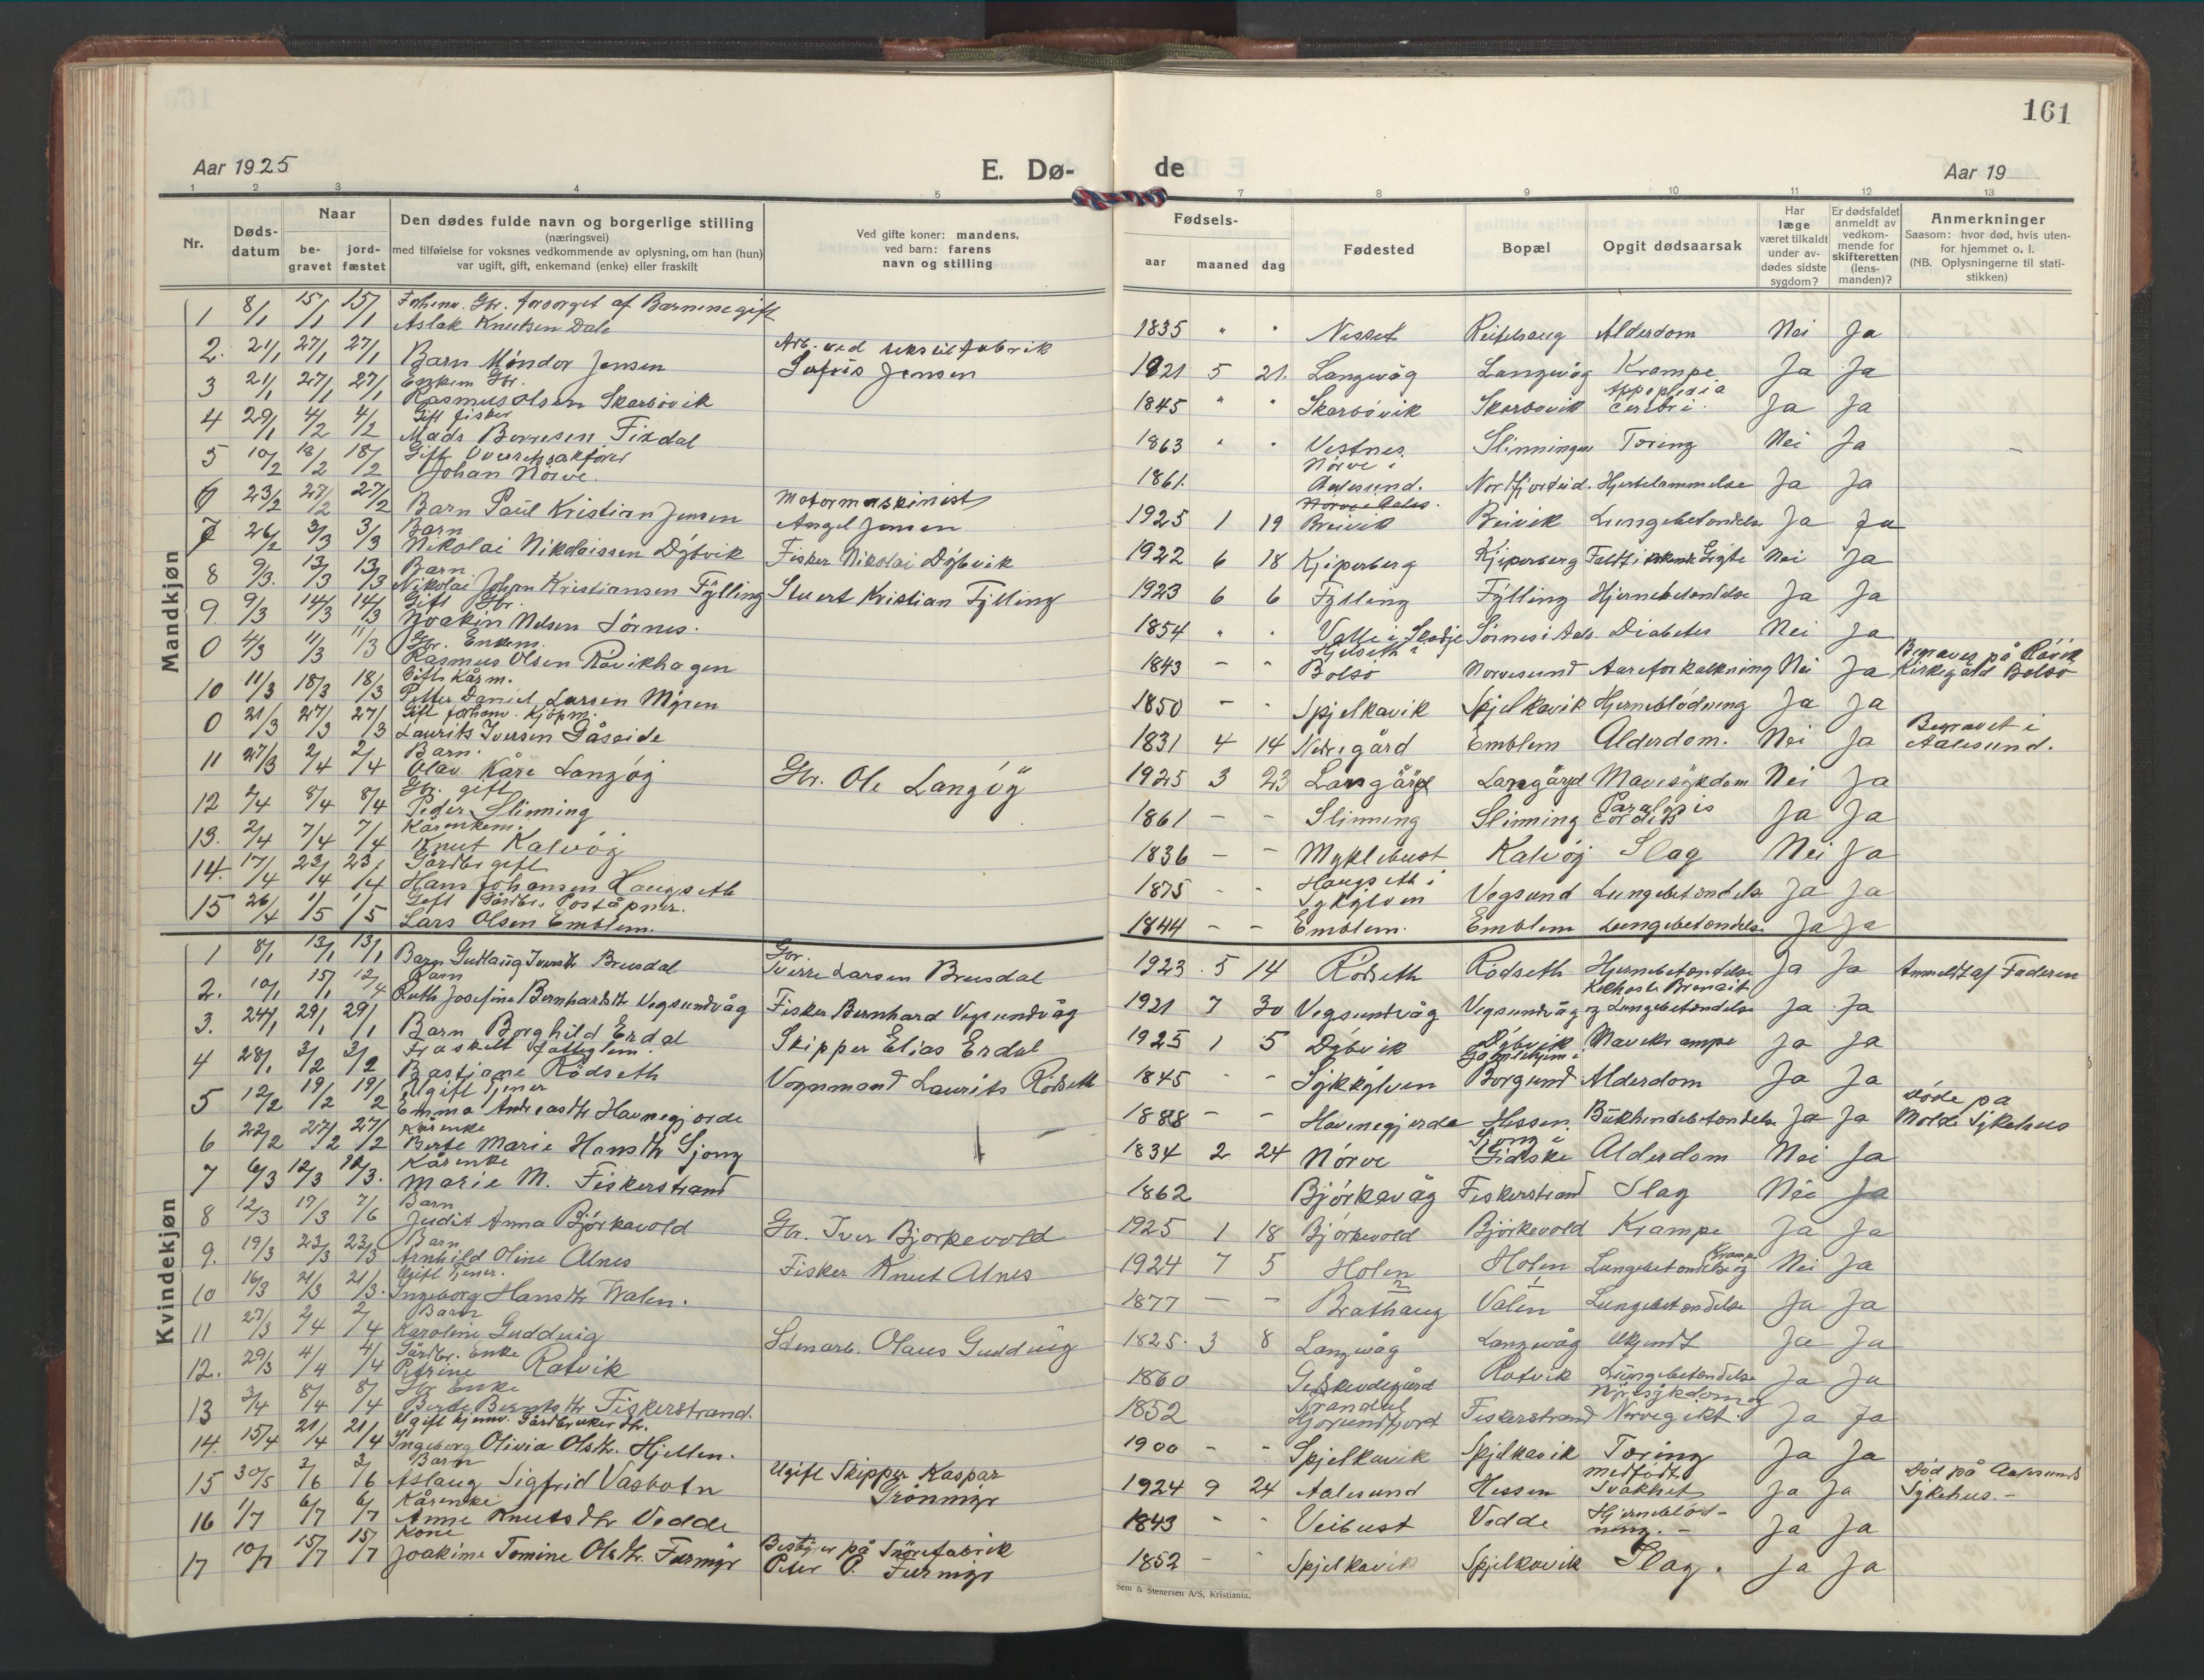 161
Aar 1925
E. Dø-
de
Aar 19
1 2 3 4 5 7 8 9 10 11 12 13
Nr.
Døds-
datum
Naar
be-
gravet
jord-
fæstet
Den dødes fulde navn og borgerlige stilling
(næringsvei)
med tilføielse for voksnes vedkommende av oplysning, om han (hun)
var ugift, gift, enkemand (enke) eller fraskilt
Ved gifte koner: mandens,
ved barn: farens
navn og stilling
Fødsels-
aar maaned dag
Fødested
Bopæl
Opgit dødsaarsak
Har
læge
været tilkaldt
under av-
dødes sidste
sygdom?
Er dødsfaldet
anmeldt av
vedkom-
mende for
skifteretten
(lens-
manden)?
Anmerkninger
Saasom: hvor død, hvis uten-
for hjemmet o. l.
(NB. Oplysningerne til stati-
stikken)
Mandkjøn
1 8/1 15/1 15/1 Forhenv. Gbr. forsorget af Barnene gift
Aslak Knutsen Dale 1835 " " Nesset Reitehaug Alderdom Nei Ja
2. 21/1 27/1 27/1 Barn Møndor Jensen Arb. ved tekstilfabrik
Sofus Jensen 1921 5 21. Langevåg Langevåg Krampe Ja Ja
3 21/1 27/1 27/1 Enkem Gbr.
Rasmus Olsen Skarbøvik 1845 " " Skarbøvik Skarbøvik Appoplexia
cerebri. Ja Ja
4 29/1 4/2 4/2 Gift fisker
Mads Bernsen Fixdal 1863 " " Vestnes Slinningen Tæring Nei Ja
5 10/2 18/2 18/2 Gift Overretssakfører
Johan Nørve. 1861. Nørve i
Aalesund. Nordfjordeid. Hjertelammelse Ja Ja
6 23/2 27/2 27/2 Barn Paul Kristian Jensen Motormaskinist
Angel Jensen 1925 1 19 Nørve Aales.
Breivik Breivik Lungebetændelse Ja Ja
7 26/2 3/3 3/3 Barn
Nikolai Nikolaissen Dybvik Fisker Nikolai Dybvik 1922 6 18 Kjiperberg Kjiperberg Faldt i kokende Gryte Nei Ja
8 9/3. 13/3 13/3 Barn
Nikolai Johan Kristiansen Fylling Stuert Kristian Fylling 1923 6 6 Fylling Fylling Hjernebetændelse Ja Ja
9. 9/3 14/3 14/3 Gift Gbr.
Joakin Nelsen Sørnes. 1854 " " Valle i Skodje Sørnes i Aals. Diabetes Nei Ja
0 4/3 11/3 11/3 Gbr. Enkem.
Rasmus Olsen Røvikhagen 1843 – – Hjelseth i
Bolsø Nørvesund Aareforkalkning Nei Ja Begraves på Røvik
Kirkegård Bolsø
10 11/3 18/3 18/3 Gift Kårm.
Petter Daniel Larsen Myren 1850 – – Spjelkavik Spjelkavik Hjerneblødning Ja Ja
0 21/3 27/3 27/3 Gift forhenv. Kjøpm.
Laurits Iversen Gåseide 1831 4 14 Nedregård Emblem Alderdom. Nei Ja Begravet i
Aalesund.
11 27/3 2/4 2/4 Barn.
Olav Kåre Langøy Gbr. Ole Langøy 1925 3 23 Langård Langård Mavesykdom Nei Ja
12 2/4 8/4 8/4 Gbr. gift
Peder Slinning 1861 – – Slinning Slinning Paralysis
cordis Ja Ja
13. 2/4 7/4 7/4 Kårenkem.
Knut Kalvøy 1836 – – Myklebust Kalvøy Slag Nei Ja
14. 17/4 23/4 23/4 Gårdbr gift
Hans Johansen Haugseth 1875 " " Haugseth i
Sykkylven Vegsund Lungebetændelse Ja Ja
15 26/4 1/5 1/5 Gift Gårdbr. Poståpner.
Lars Olsen Emblem. 1844 – – Emblem. Emblem Lungebetændelse Ja Ja
Kvindekjøn
1 8/1 13/1 13/1 Barn Gudlaug Iversdtr Breusdal Gbr.
Sverre Larsen Breusdal 1923. 5 14 Rødseth Rødseth Hjernebetændelse Ja Ja Anmeldt af Faderen
2. 10/1 15/1 12/4 Barn
Ruth Josefine Bernhardsdtr Vegsundvåg Fisker Bernhard Vegsundvåg 1921 7 30 Vegsundvåg Vegsundvåg Kikhoste Bronkit
og Lungebetændelse Ja Ja
3. 24/1 29/1 29/1 Barn Borghild Erdal Skipper Elias Erdal 1925 1 5 Dybvik Dybvik Mavekrampe Ja Ja
4 28/1 3/2 3/2 Fraskilt fattiglem.
Bastiane Rødseth Vognmand Laurits Rødseth 1845 " " Sykkylven Gamlehjem i
Borgund Alderdom Ja Ja
5 12/2 19/2 19/2 Ugift Tjener
Emma Andreasdtr Havnegjerde 1888 – – Havnegjerde Hessen. Bukhindebetændelse Ja Ja Døde på
Molde Sykehus
6 22/2 27/2 27/2 Kårenke
Berte Marie Hansdtr Gjong 1834 2 24 Nørve Gjong i
Giske Alderdom Nei Ja
7 6/3 12/3 12/3. Kårenke
Marie M. Fiskerstrand 1862 Bjørkavåg Fiskerstrand Slag Nei Ja
8 12/3 17/3 7/6 Barn
Judit Anna Bjørkavold Gbr. Iver Bjørkevold 1925 1 18 Bjørkevold Bjørkevold Krampe Ja Ja
9. 19/3 23/3 23/3 Barn
Arnhild Oline Alnes Fisker Knut Alnes 1924 7 5 Holen Holen Lungebetændelse og Krampe Nei Ja
10 16/3 21/3 21/3. Ugift Tjener.
Ingeborg Hansdtr Walen. 1877 – – Brathaug Valen Lungebetændelse Ja Ja
11 27/3 2/4 2/4 Barn
Karoline Guddvig Stenarb. Olaus Guddvig 1825. 3 8 Langevåg Langevåg Ukjendt Ja Ja
12. 29/3 4/4 4/4 Gårdbr. Enke
Petrine Ratvik 1860 Ratvik Lungebetændelse Ja Ja
13 3/4 8/4 8/4 Gbr Enke
Berte Berntsdtr Fiskerstrand. 1852 Trandal
Hjørundfjord Fiskerstrand Hjertesykdom og
Nervegikt. Ja Ja
14. 15/4 21/4 21/4 Ugift hjemv. Gårdbrukerdtr.
Ingeborg Olivia Olsdtr. Hjellen. 1900 – – Spjelkavik Spjelkavik Tæring Ja Ja
15 30/5 2/6 2/6 Barn
Aslaug Sigfrid Vasbotn Ugift Skipper Kaspar
Grønmyr 1924 9 24 Aalesund Hessen medfødt
Svakhet Ja Ja Død på Aalesunds
Sykehus.–
16 1/7 6/7 6/7 Kårenke
Anne Knutsdtr Vedde 1843 " " Veibust Vedde Hjerneblød-
ning.– Ja Ja
17 10/7 15/7 15/7 Kone
Joakime Tomine Olsdtr. Furmyr Bestyrer på Snørefabrik
Peter P. Furmyr 1852 – " Spjelkavik Spjelkavik Slag. Ja Ja
Sem & Stenersen A/S, Kristiania.